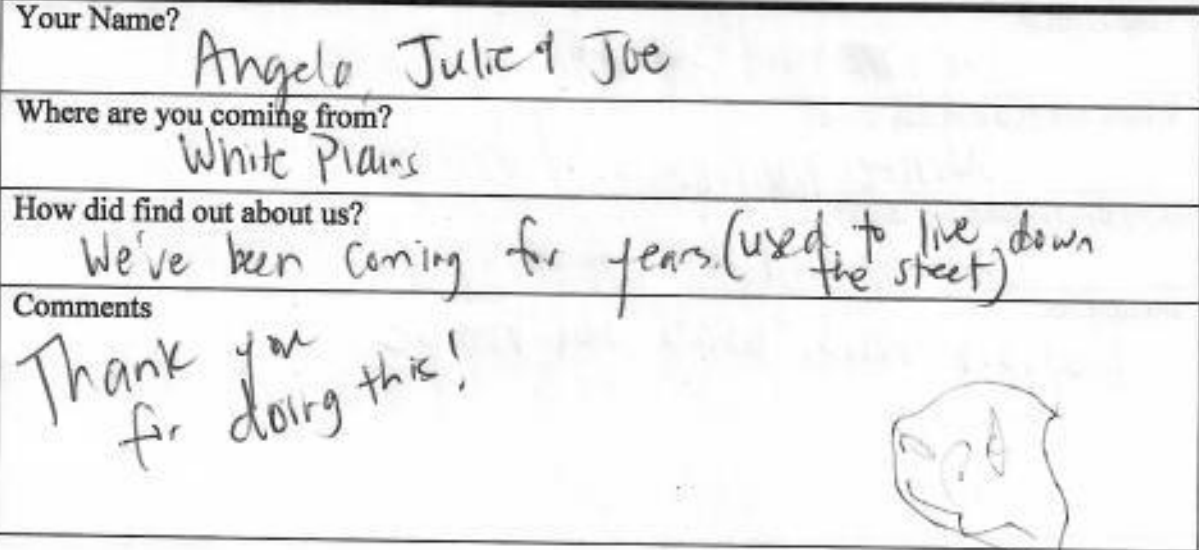 Your Name?
Angela, Julie & Joe
Where are you coming from?
White Plains
How did find out about us?
We've been coming for years. (used to live down
the steet)
Comments
Thank you
for doing this!